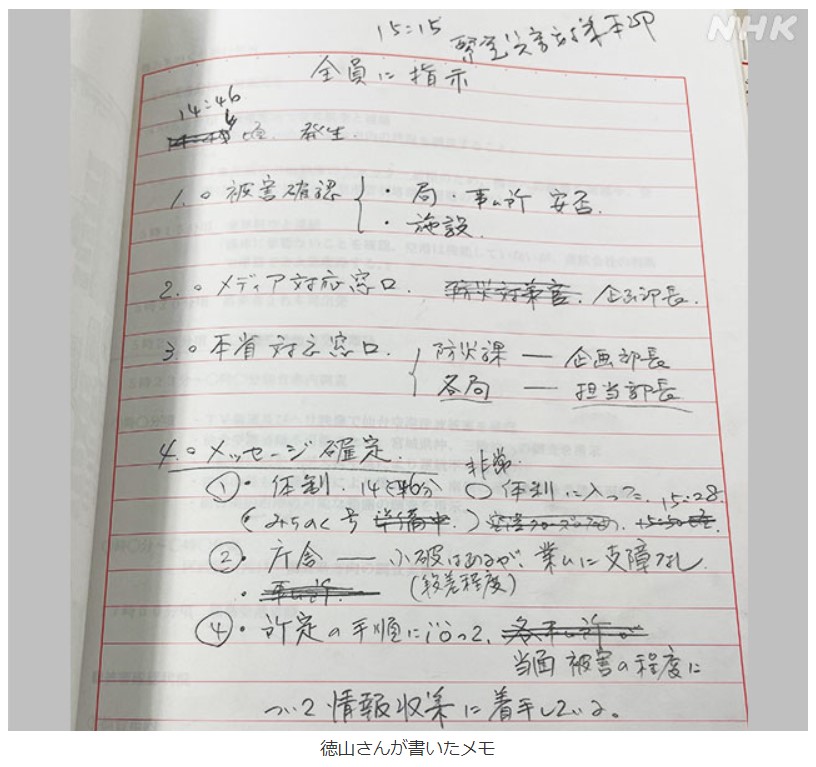 NHK
15:15 緊急災害対策本部
全員に指示
14:46
発生.
1.○被害確認 ・局・事ム所 安否.
・施設.
2.○メディア対応窓口. 防災対策官. 企画部長.
3.○本省対応窓口. 防災課 — 企画部長
各局 — 担当部長
4.○メッセージ確定.
非常
①・体制. 14時46分 ○体制に入った. 15:28
(みちのく号 準備中.)
②・庁舎 — 小破はあるが、業ムに支障なし.
・事ム所. (段差程度)
④・所定の手順に沿って, 各事ム所が
当面 被害の程度に
ついて情報収集に着手している。
徳山さんが書いたメモ